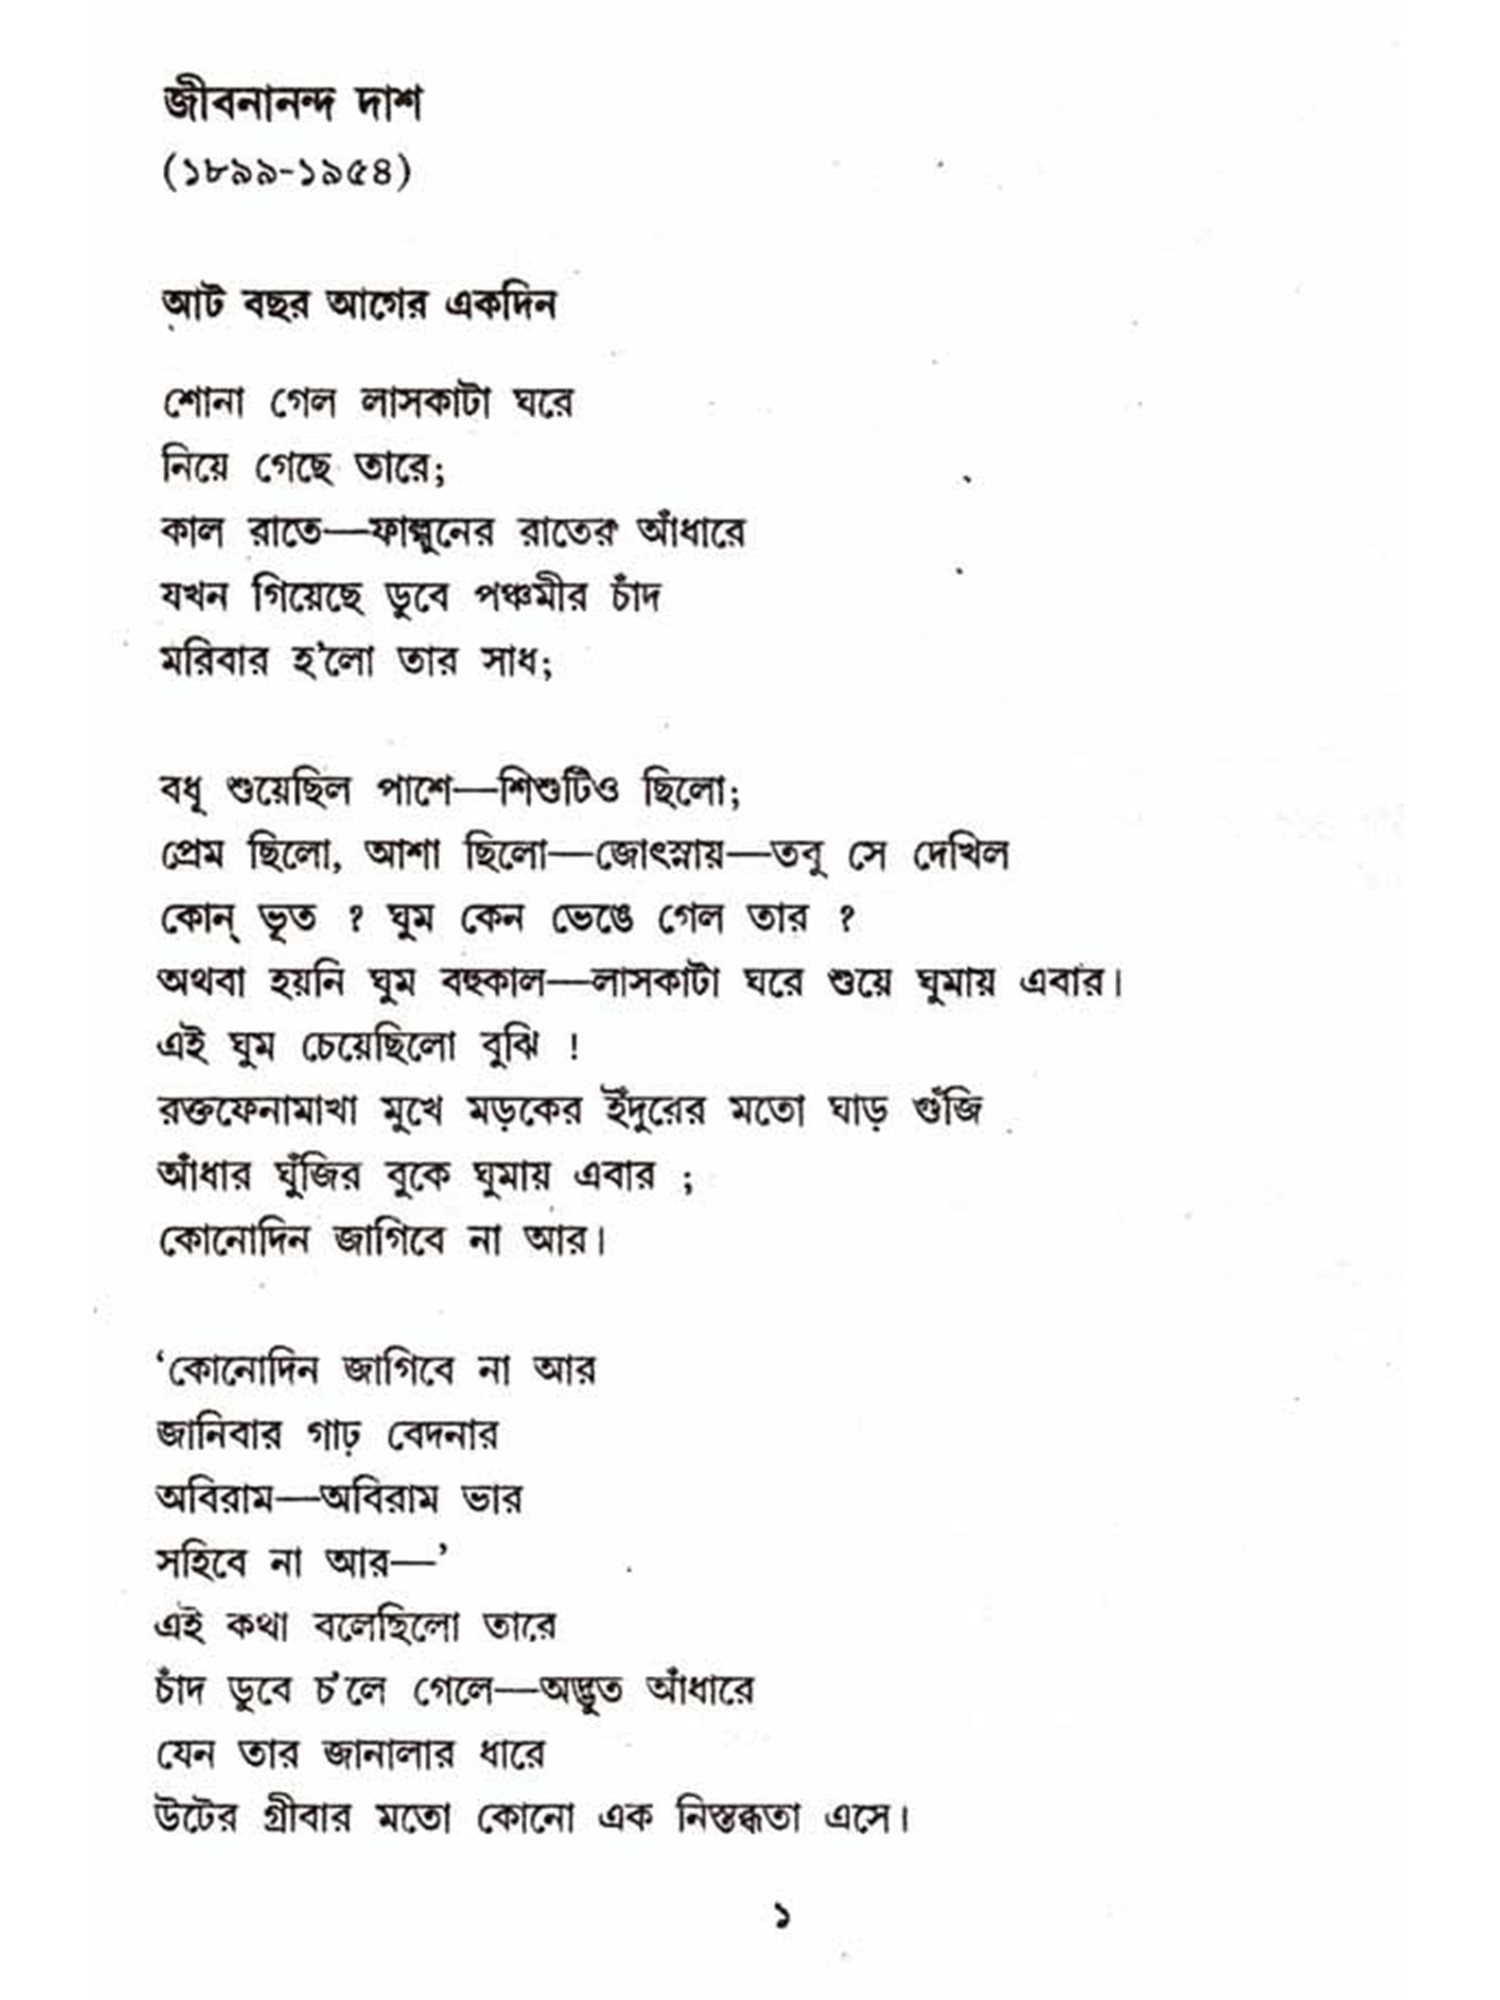 জীবনানন্দ দাশ
(১৮৯৯-১৯৫৪)
আট বছর আগের একদিন
শোনা গেল লাসকাটা ঘরে
নিয়ে গেছে তারে;
কাল রাতে—ফাল্গুনের রাতের আঁধারে
যখন গিয়েছে ডুবে পঞ্চমীর চাঁদ
মরিবার হ'লো তার সাধ;
বধূ শুয়েছিল পাশে—শিশুটিও ছিলো;
প্রেম ছিলো, আশা ছিলো—জোৎস্নায়—তবু সে দেখিল
কোন্ ভূত ? ঘুম কেন ভেঙে গেল তার ?
অথবা হয়নি ঘুম বহুকাল—লাসকাটা ঘরে শুয়ে ঘুমায় এবার।
এই ঘুম চেয়েছিলো বুঝি !
রক্তফেনামাখা মুখে মড়কের ইঁদুরের মতো ঘাড় গুঁজি
আঁধার ঘুঁজির বুকে ঘুমায় এবার ;
কোনোদিন জাগিবে না আর।
‘কোনোদিন জাগিবে না আর
জানিবার গাঢ় বেদনার
অবিরাম—অবিরাম ভার
সহিবে না আর—’
এই কথা বলেছিলো তারে
চাঁদ ডুবে চ'লে গেলে—অদ্ভুত আঁধারে
যেন তার জানালার ধারে
উটের গ্রীবার মতো কোনো এক নিস্তব্ধতা এসে।
১